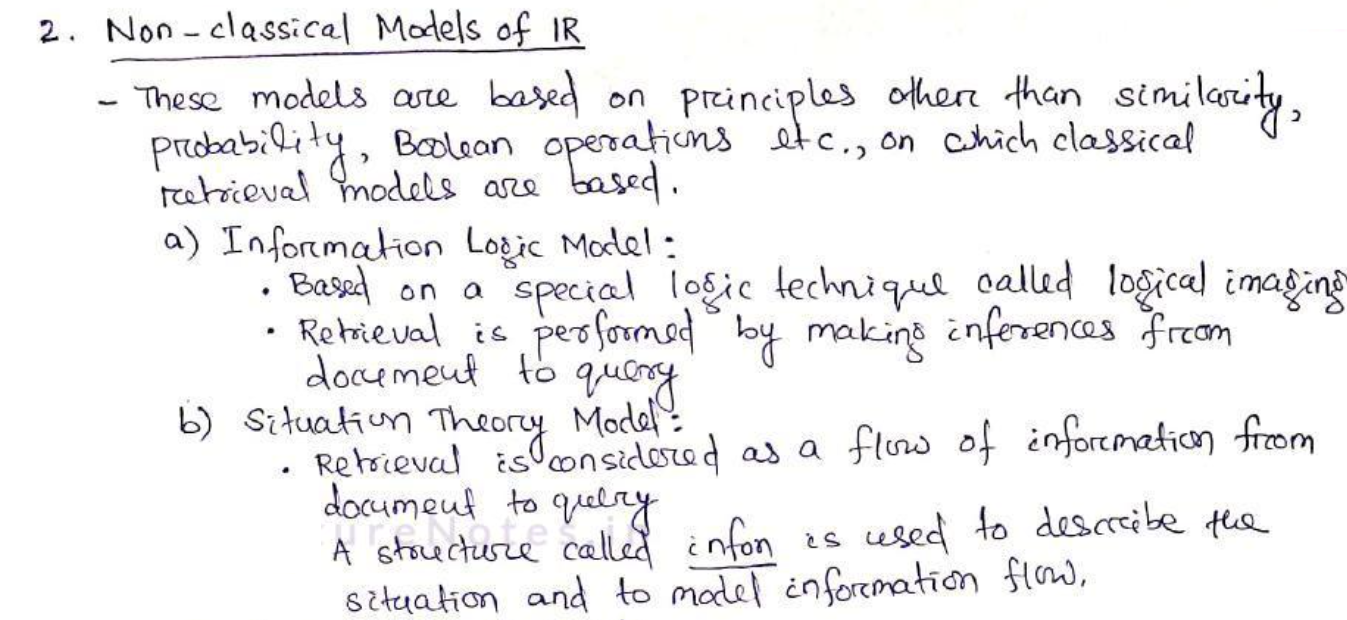 2. Non-classical Models of IR
- These models are based on principles other than similarity,
probability, Boolean operations etc., on which classical
retrieval models are based.
a) Information Logic Model:
• Based on a special logic technique called logical imaging
• Retrieval is performed by making inferences from
document to query
b) Situation Theory Model:
• Retrieval is considered as a flow of information from
document to query
ureNotes.i
A structure called infon is used to describe the
situation and to model information flow.